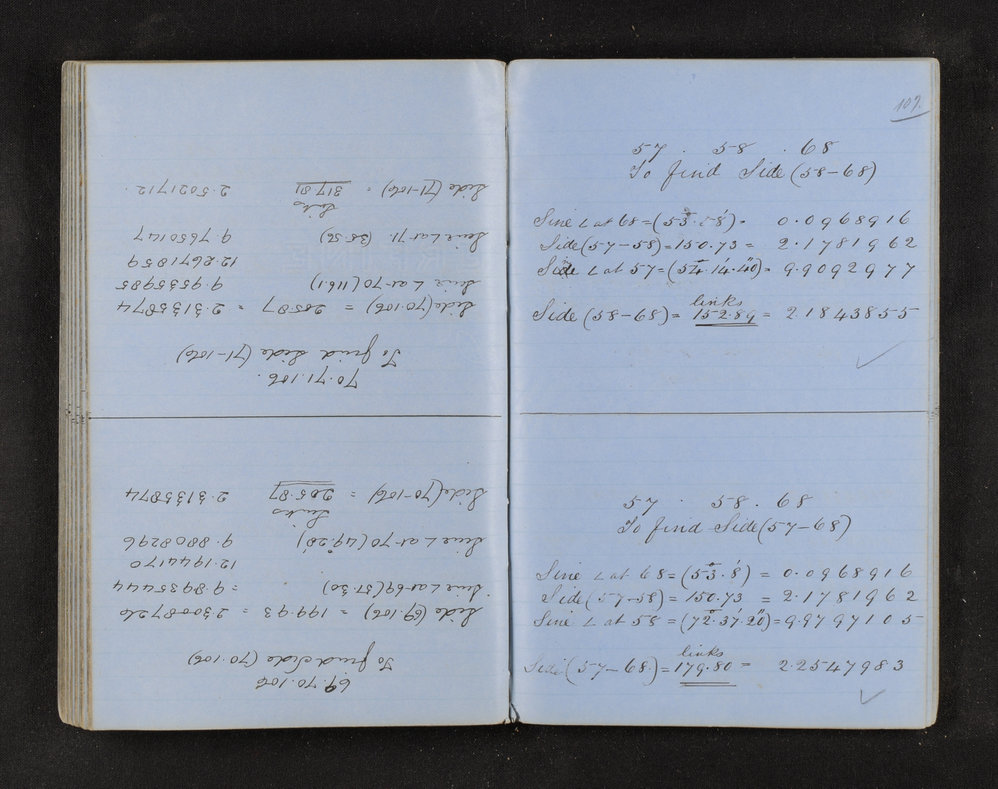 69.70.106
To find Side (70.106)
Side (69.106) = 199.93 = 2.3008726
Sine ∠ at 69 (51.30) = 9.8935444
12.1944170
Sine ∠ at 70 (49.28) 9.8808296
Links
Side (70-106) = 205.87 2.3135874
70.71.106.
To find Side (71-106)
Side (70.106) = 205.87 = 2.3135874
Sine ∠ at 70 (116.1) 9.9535985
12.2671859
Sine ∠ at 71. (35.36) 9.7650147
Links
Side (71-106) = 317.81 2.5021712.
109.
57 . 58 . 68
To find Side (58-68)
Sine ∠ at 68 = (53°.8') = 0.0968916
Side (57-58) = 150.73 = 2.1781962
Sine ∠ at 57 = (54°.14'.40") = 9.9092977
links
Side (58-68) = 152.89 = 2.1843855
57 . 58 . 68
To find Side (57-68)
Sine ∠ at 68 = (53°.8') = 0.0968916
Side (57-58) = 150.73 = 2.1781962
Sine ∠ at 58 = (72°.37'.20") = 9.9797105
links
Side (57-68) = 179.80 = 2.2547983